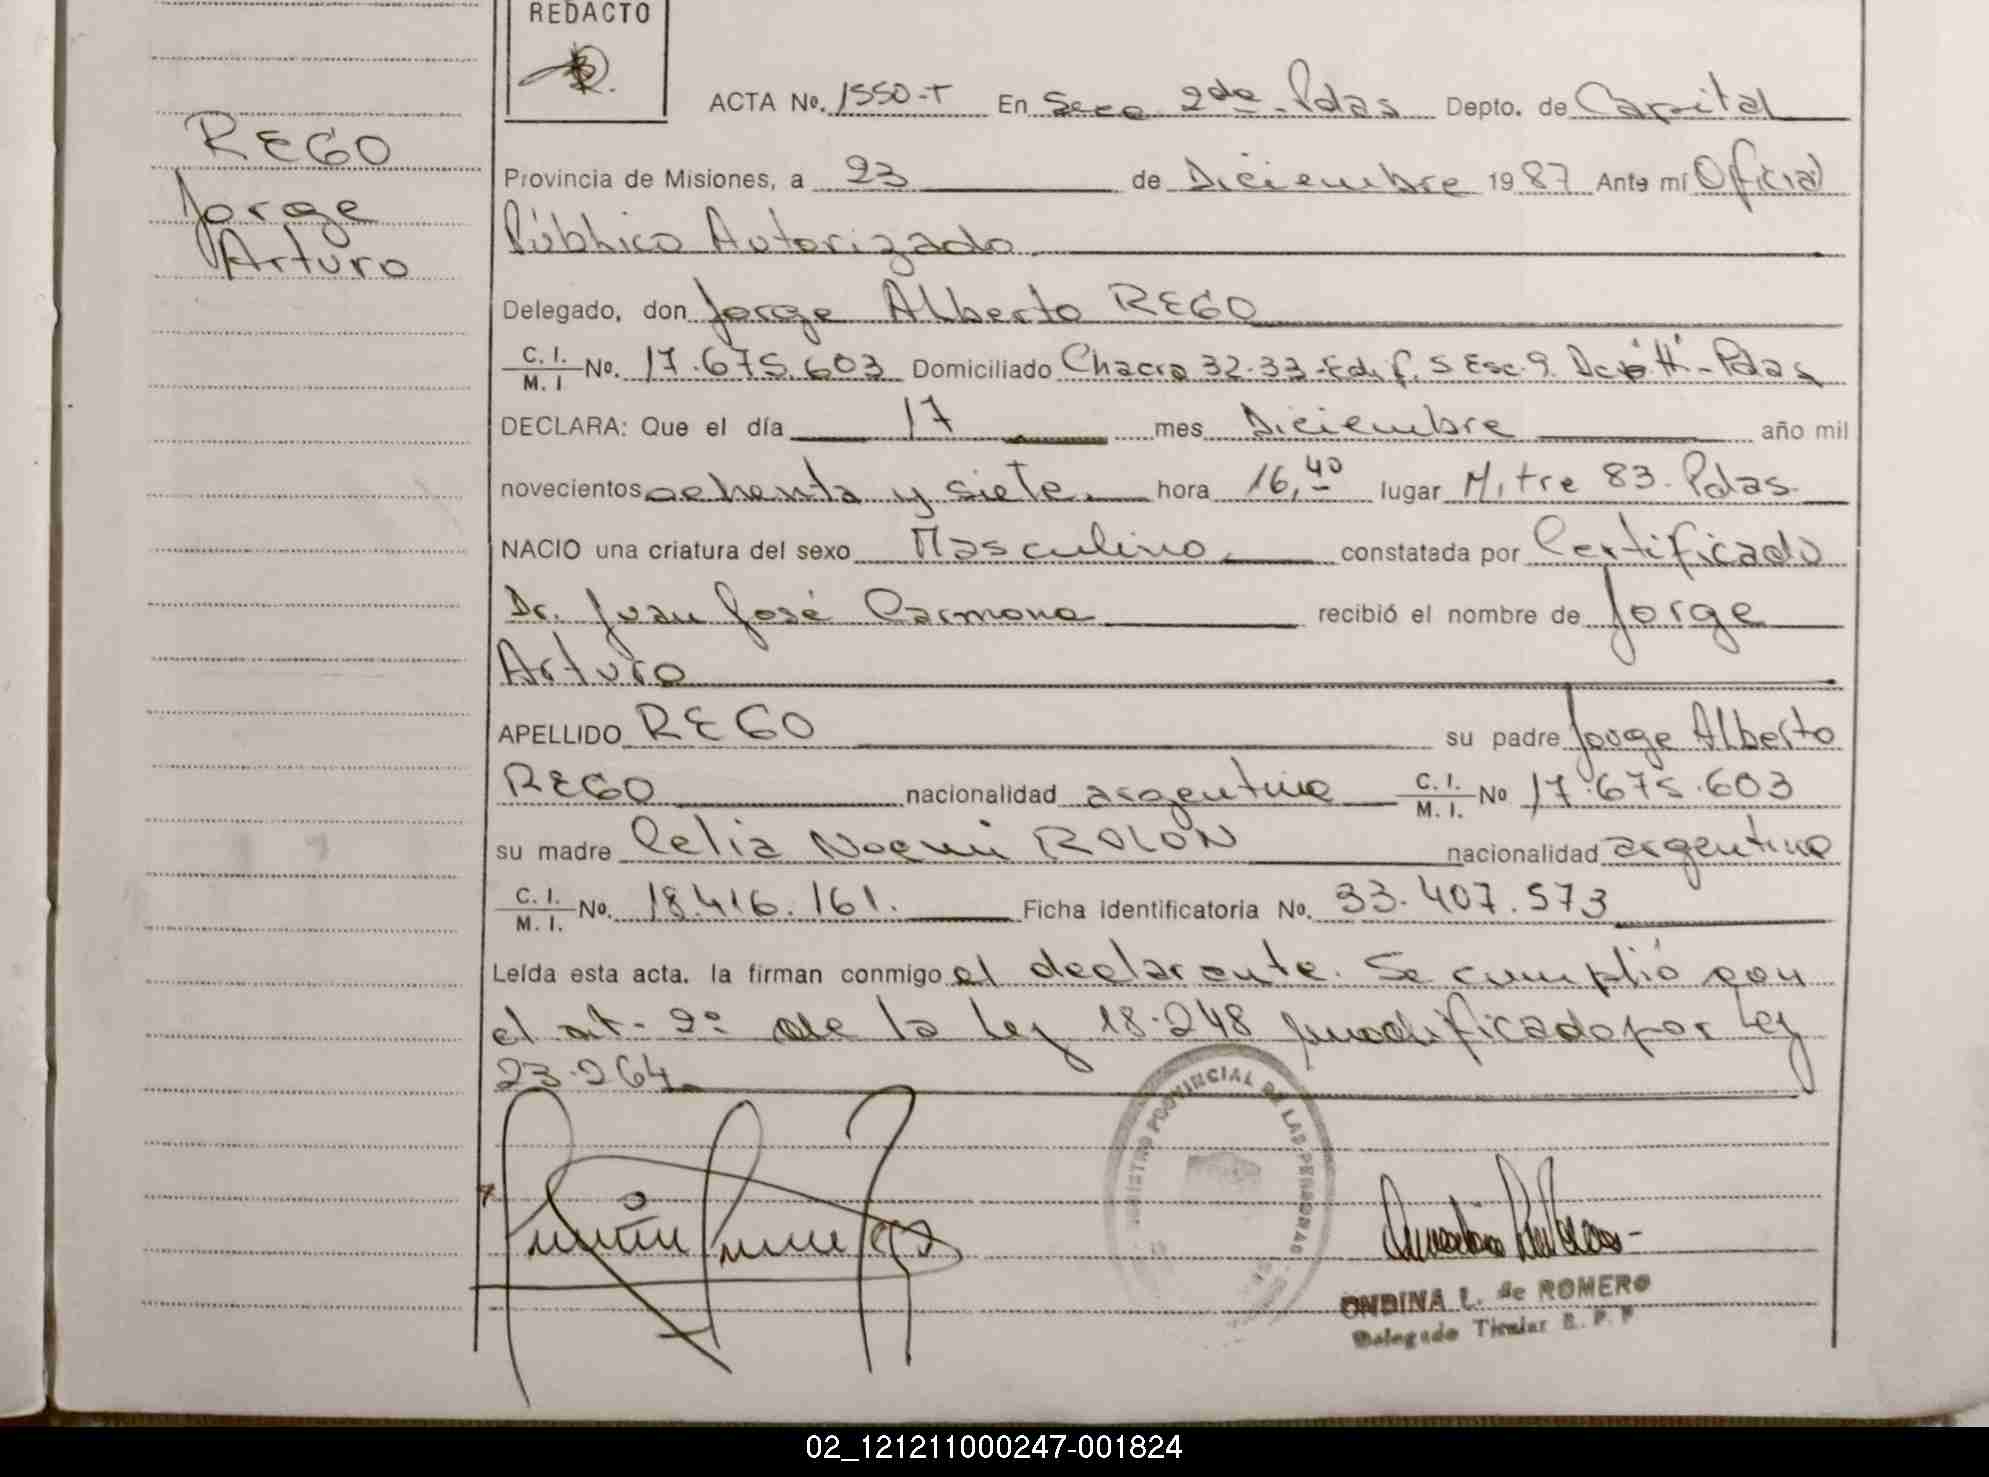 REDACTO
REGO
Jorge
Arturo
ACTA No. 1550-T En Secc 2da Pdas Depto. de Capital
Provincia de Misiones, a 23 de Diciembre 1987 Ante mí Oficial
Público Autorizado
Delegado, don Jorge Alberto REGO
C. I. / M. I No. 17.675.603 Domiciliado Chacra 32-33-Edif. 5 Esc. 9. Dep "H"- Pdas
DECLARA: Que el día 17 mes Diciembre año mil
novecientos ochenta y siete. hora 16,40 lugar Mitre 83. Pdas.
NACIO una criatura del sexo Masculino constatada por Certificado
Dr. Juan José Carmona recibió el nombre de Jorge
Arturo
APELLIDO REGO su padre Jorge Alberto
REGO nacionalidad argentina C. I. / M. I. No 17.675.603
su madre Celia Noemi ROLON nacionalidad argentina
C. I. / M. I. No. 18.416.161. Ficha identificatoria No. 33.407.573
Leída esta acta. la firman conmigo el declarante. Se cumplió con
el art. 2º de la Ley 18.248 modificado por Ley
23.264
REGISTRO PROVINCIAL DE LAS PERSONAS
ONDINA L. de ROMERO
Delegado Titular R. P. P
02_121211000247-001824